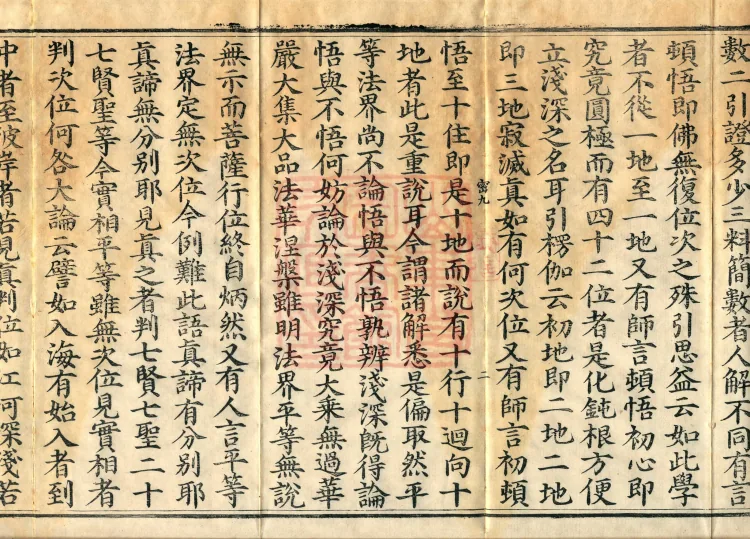 數二引證多少三料簡數者人解不同有言
頓悟即佛無復位次之殊引思益云如此學
者不從一地至一地又有師言頓悟初心即
究竟圓極而有四十二位者是化鈍根方便
立淺深之名耳引楞伽云初地即二地二地
即三地寂滅真如有何次位又有師言初頓
悟至十住即是十地而說有十行十迴向十
地者此是重說耳今謂諸解悉是偏取然平
等法界尚不論悟與不悟孰辨淺深既得論
悟與不悟何妨論於淺深究竟大乘無過華
嚴大集大品法華涅槃雖明法界平等無說
無示而菩薩行位終自炳然又有人言平等
法界定無次位今例難此語真諦有分別耶
真諦無分別耶見真之者判七賢七聖二十
七賢聖等今實相平等雖無次位見實相者
判次位何咎大論云譬如入海有始入者到
中者至彼岸者若見真判位如江河深淺若